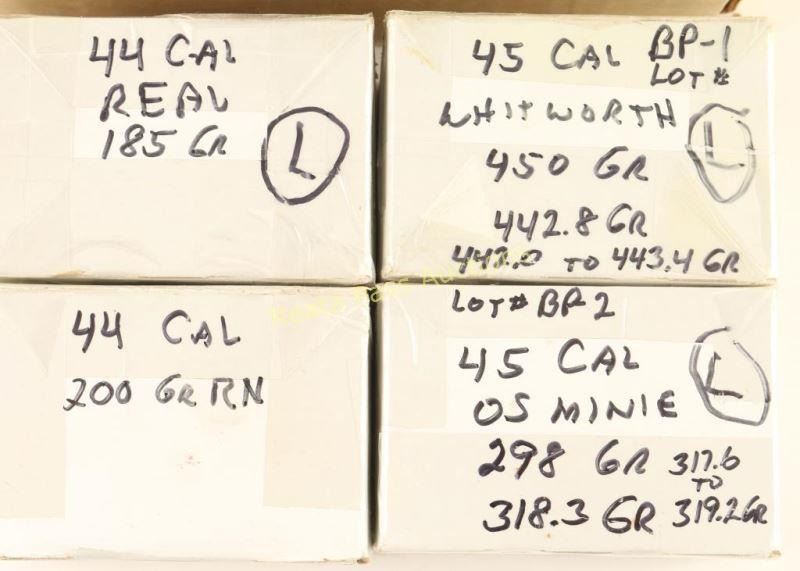 44 CAL
REAL
185 GR
L
45 CAL BP-1
LOT #
WHITWORTH
L
450 GR
442.8 GR
TO 443.4 GR
44 CAL
200 GR RN
LOT # BP-2
45 CAL
L
OS MINIE
298 GR 317.6
TO
318.3 GR 319.2 GR